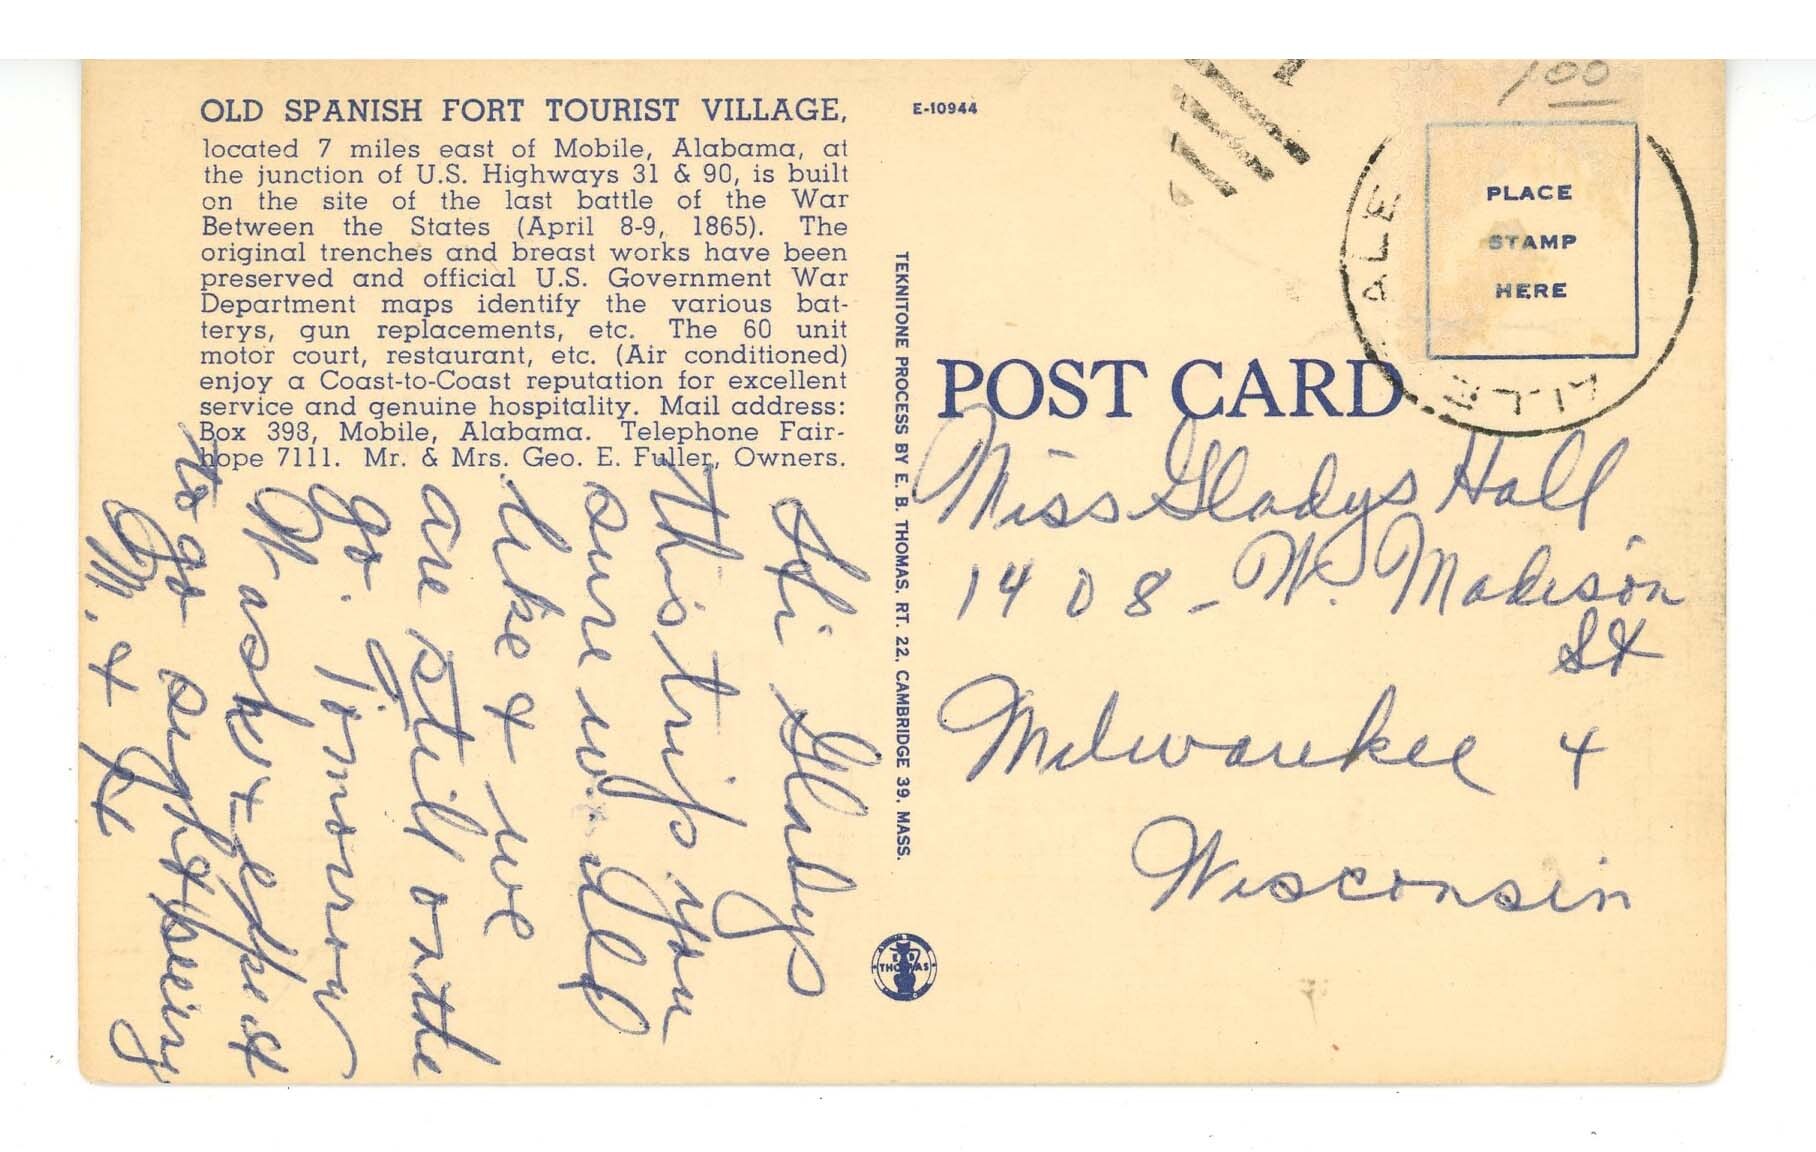 OLD SPANISH FORT TOURIST VILLAGE,
located 7 miles east of Mobile, Alabama, at
the junction of U.S. Highways 31 & 90, is built
on the site of the last battle of the War
Between the States (April 8-9, 1865). The
original trenches and breast works have been
preserved and official U.S. Government War
Department maps identify the various bat-
terys, gun replacements, etc. The 60 unit
motor court, restaurant, etc. (Air conditioned)
enjoy a Coast-to-Coast reputation for excellent
service and genuine hospitality. Mail address:
Box 398, Mobile, Alabama. Telephone Fair-
hope 7111. Mr. & Mrs. Geo. E. Fuller, Owners.
Hi Gladys
this trip you
sure would
like & we
are still on the
go. Tomorrow
expect
to go sightseeing
M. &
E-10944
TEKNITONE PROCESS BY E. B. THOMAS, RT. 22, CAMBRIDGE 39, MASS.
E B
THOMAS
1.00
PLACE
STAMP
HERE
ALE
POST CARD
Miss Gladys Hall
1408 - W. Madison
St
Milwaukee 4
Wisconsin